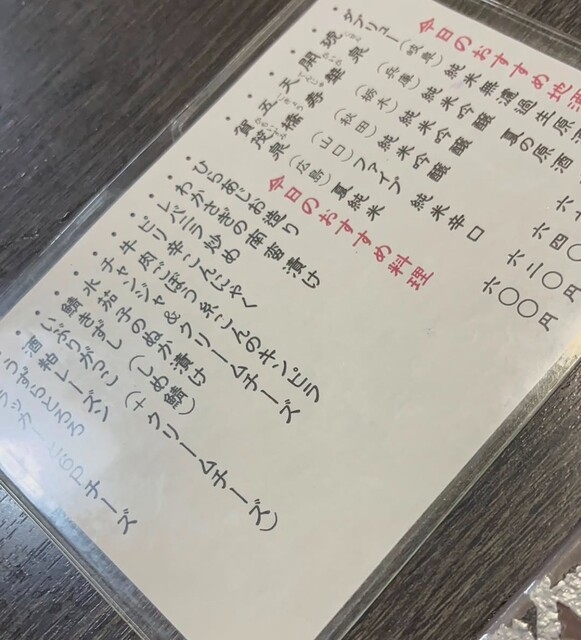 今日のおすすめ地酒
・ダブリュー（岐阜）純米無濾過生原酒
・玻泉（兵庫）純米吟醸 夏の原酒
・開華（栃木）純米吟醸 六
・天寿（秋田）純米吟醸 六四〇
・五橋（山口）ファイブ 純米辛口 六三〇円
・賀茂泉（広島）夏純米 六〇〇円
今日のおすすめ料理
・ひらあじお造り
・わかさぎの南蛮漬け
・しばニラ炒め
・ピリ辛こんにゃく
・牛肉ごぼう糸こんのキンピラ
・チャンジャ&クリームチーズ
・水茄子のぬか漬け
・鯖きずし（しめ鯖）
・いぶりがっこ（+クリームチーズ）
・酒粕レーズン
うずらとろろ
ラッカー
6Pチーズ